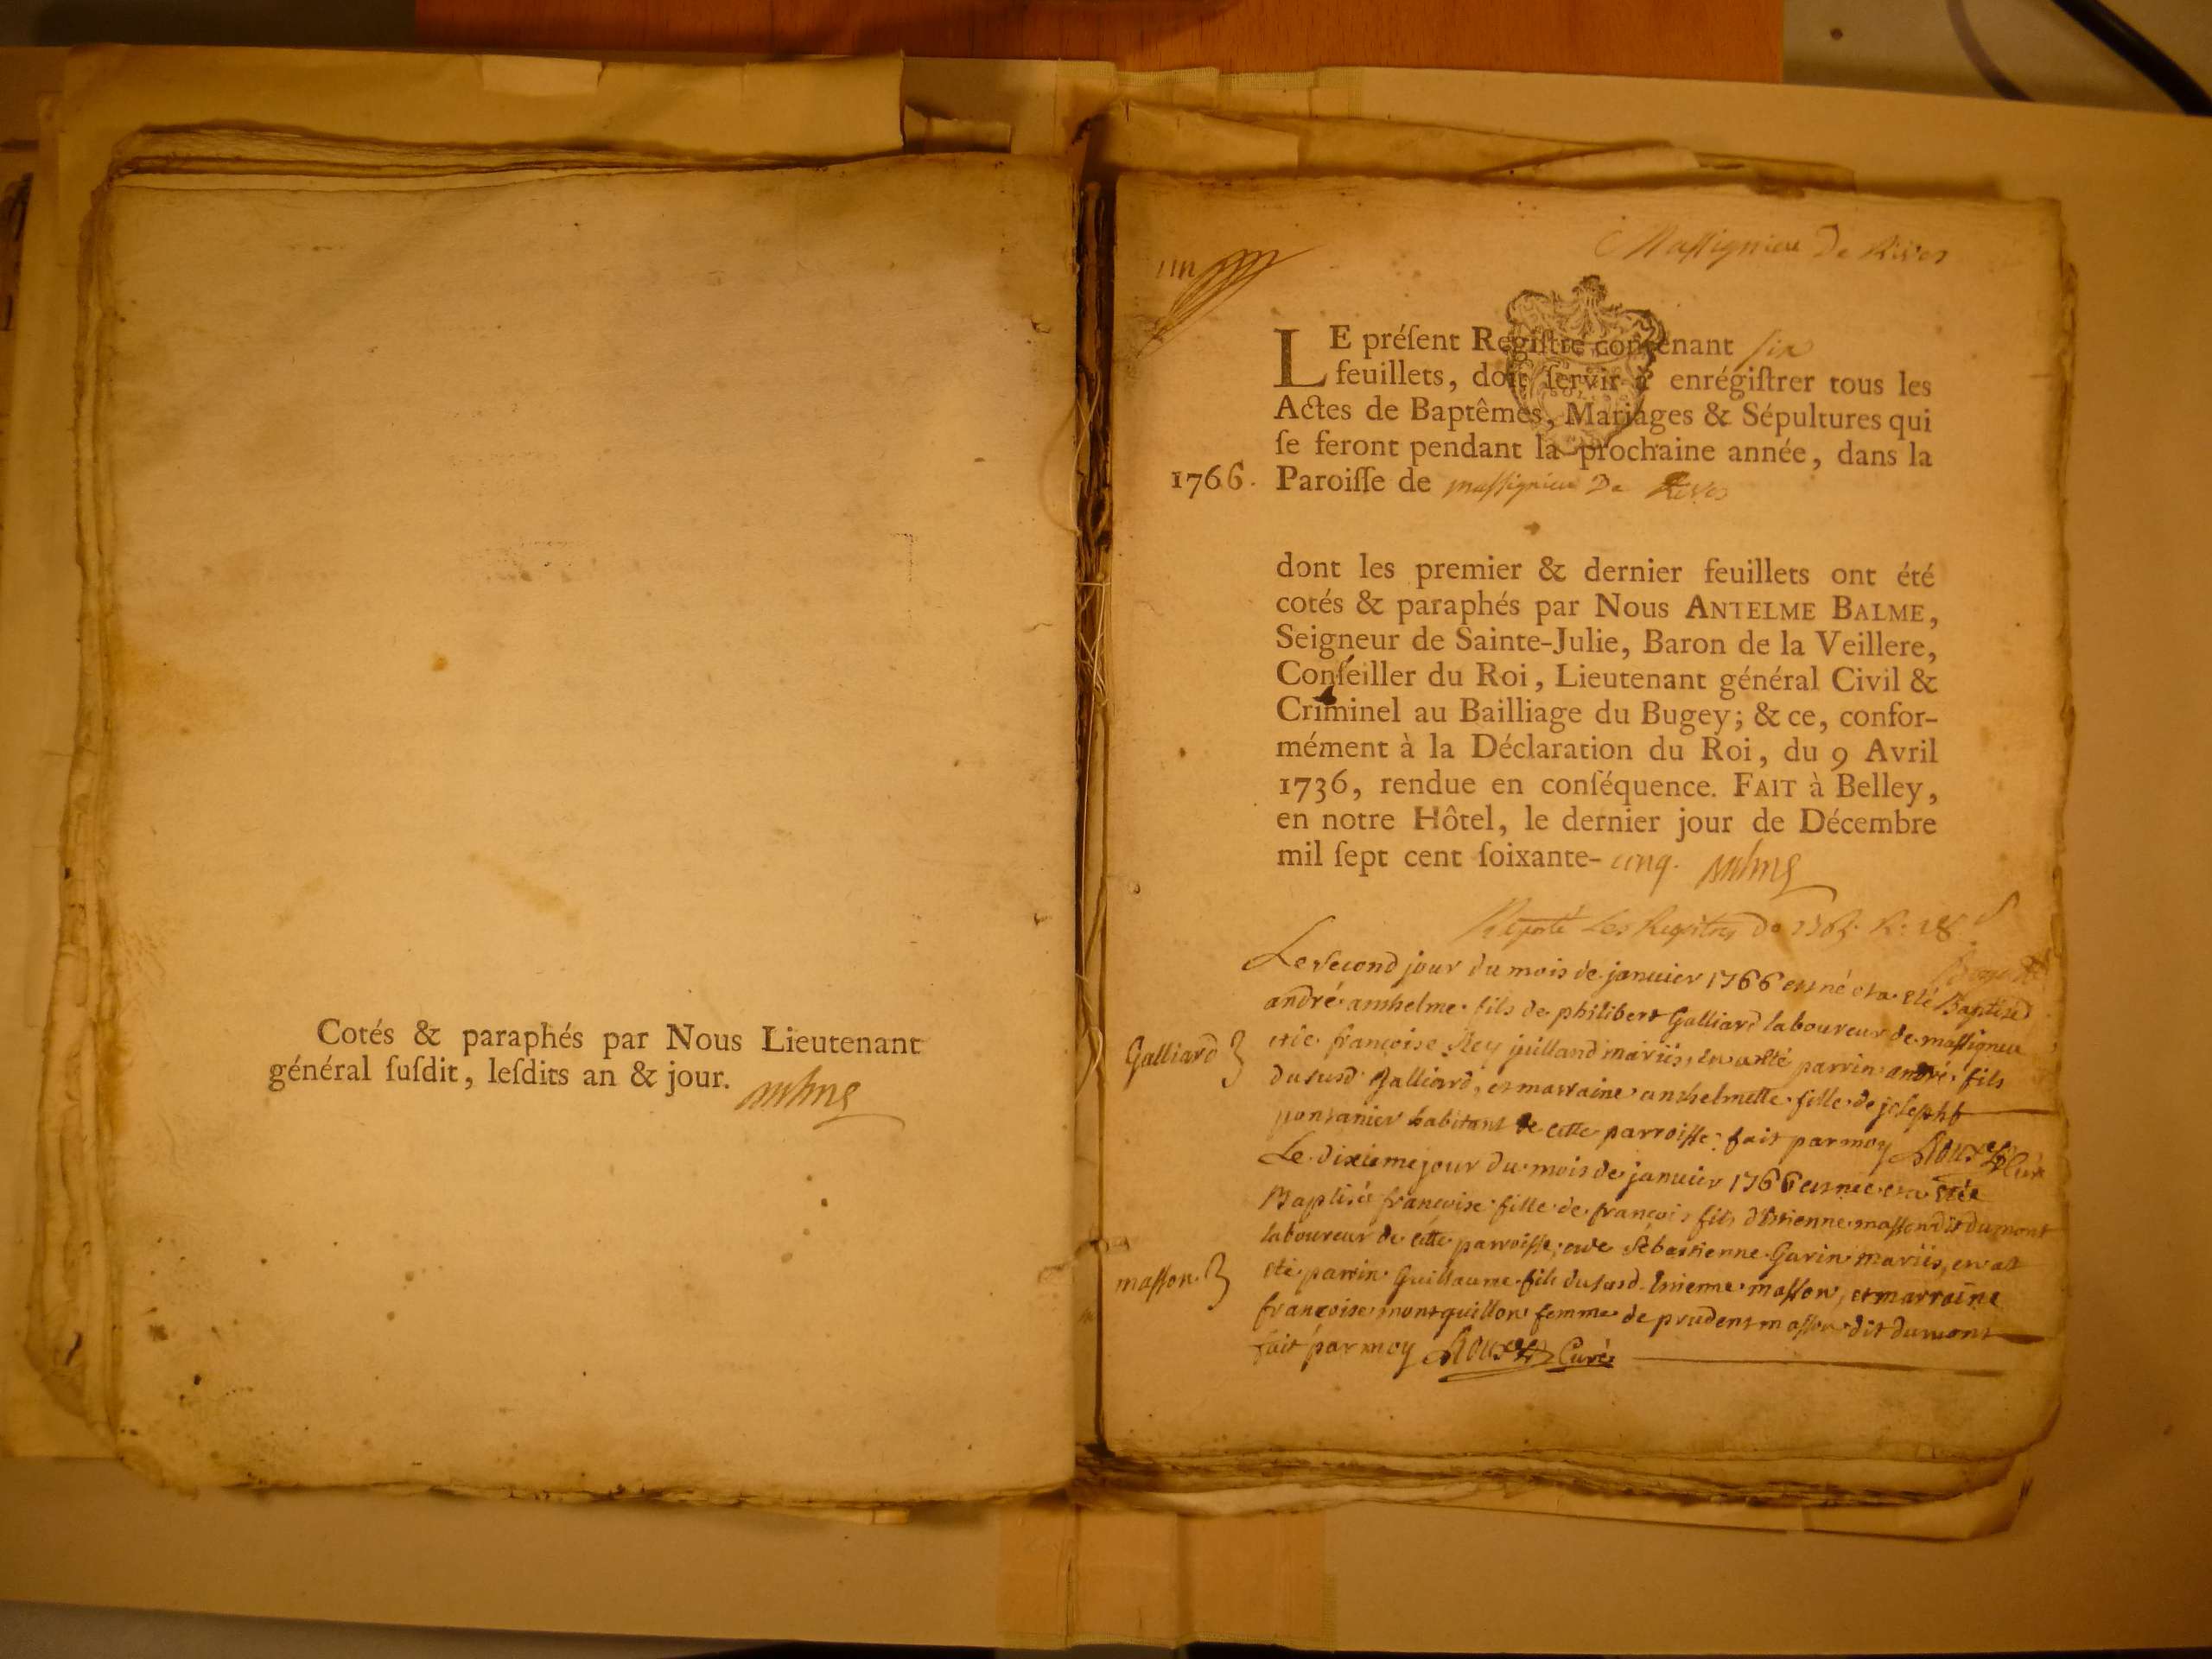 Cotés & paraphés par Nous Lieutenant
général ſuſdit, leſdits an & jour.
un
Massignieu De Rives
LE préſent Regiſtre contenant six
feuillets, doit ſervir à enrégiſtrer tous les
Actes de Baptêmes, Mariages & Sépultures qui
ſe feront pendant la prochaine année, dans la
1766. Paroiſſe de massignieu De Rives
dont les premier & dernier feuillets ont été
cotés & paraphés par Nous ANTELME BALME,
Seigneur de Sainte-Julie, Baron de la Veillere,
Conſeiller du Roi, Lieutenant général Civil &
Criminel au Bailliage du Bugey; & ce, confor-
mément à la Déclaration du Roi, du 9 Avril
1736, rendue en conſéquence. FAIT à Belley,
en notre Hôtel, le dernier jour de Décembre
mil ſept cent ſoixante- cinq.
Les Registres de 1765.
Le second jour du mois de janvier 1766 est né et a eté Baptisé
andré anthelme fils de philibert Galliard laboureur de massignieu
Galliard et de françoise Rey juilland mariés, en a eté parrin andré fils
du susd Galliard, et marraine anthelmette fille de joseph
pontanier habitant de cette parroisse; fait par moy Roux Curé
Le dixieme jour du mois de janvier 1766 est née et a etée
Baptisée françoise fille de françois fils d'Etienne masson dit dumont
laboureur de cette parroisse, et de sébastienne Garin mariés, en at
masson. eté parrin Guillaume fils du susd. Etienne masson, et marraine
françoise montquillon femme de prudent masson dit dumont
fait par moy Roux Curé